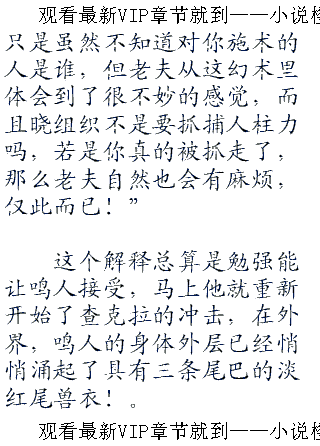 观看最新VIP章节就到——小说检
只是虽然不知道对你施术的
人是谁，但老夫从这幻术里
体会到了很不妙的感觉，而
且晓组织不是要抓捕人柱力
吗，若是你真的被抓走了，
那么老夫自然也会有麻烦，
仅此而已！”
这个解释总算是勉强能
让鸣人接受，马上他就重新
开始了查克拉的冲击，在外
界，鸣人的身体外层已经悄
悄涌起了具有三条尾巴的淡
红尾兽衣！。
观看最新VIP章节就到——小说检